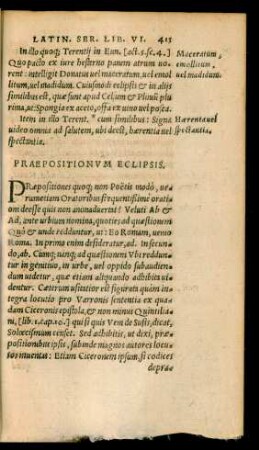 LATIN. SER. LIB. VI. 415
In illo quoq; Terentij in Eun. [act. 1. sc. 4.]
Quo pacto ex iure hesterno panem atrum uo
rent: intelligit Donatus uel maceratum, uel emol
litum, uel madidum. Cuiusmodi eclipsis & in alijs
similibus est, quæ sunt apud Celsum & Pliniũ pluri
ma, ut: Spongia ex aceto, offa ex uino uel posca.
Maceratum,
emollitum
uel madidum.
Item in illo Terent. * cum similibus: Signa
uideo omnia ad salutem, ubi deest, hærentia uel
spectantia.
Hærentia uel
spectantia.
PRAEPOSITIONVM ECLIPSIS.
PRæpositiones quoq; non Poëtis modò, ue-
rumetiam Oratoribus frequentißimè orati
oni deesse quis non animaduertit? Veluti Ab &
Ad, ante urbium nomina, quoties ad quæstionem
Quò & unde redduntur, ut: Eo Romam, uenio
Roma. In primo enim desideratur, ad. In secun-
do, ab. Cumq; nunq; ad quæstionem Vbi reddun-
tur in genitiuo, in urbe, uel oppido subaudien-
dum uidetur, quæ etiam aliquando adhibita ui-
dentur. Cæterum usitatior est figurata quàm in-
tegra locutio pro Varronis sententia ex quda-
dam Ciceronis epistola, & non minùs Quintilia-
ni, [lib. 1. cap. 10.] qui si quis Ven de Susis, dicat,
Solœcismum censet. Sed adhibitas, ut dixi, præ-
positiones hic ipsis, subinde magnos autores locu-
tos inuenias: Etiam Ciceronem ipsum, si codices
deprа-